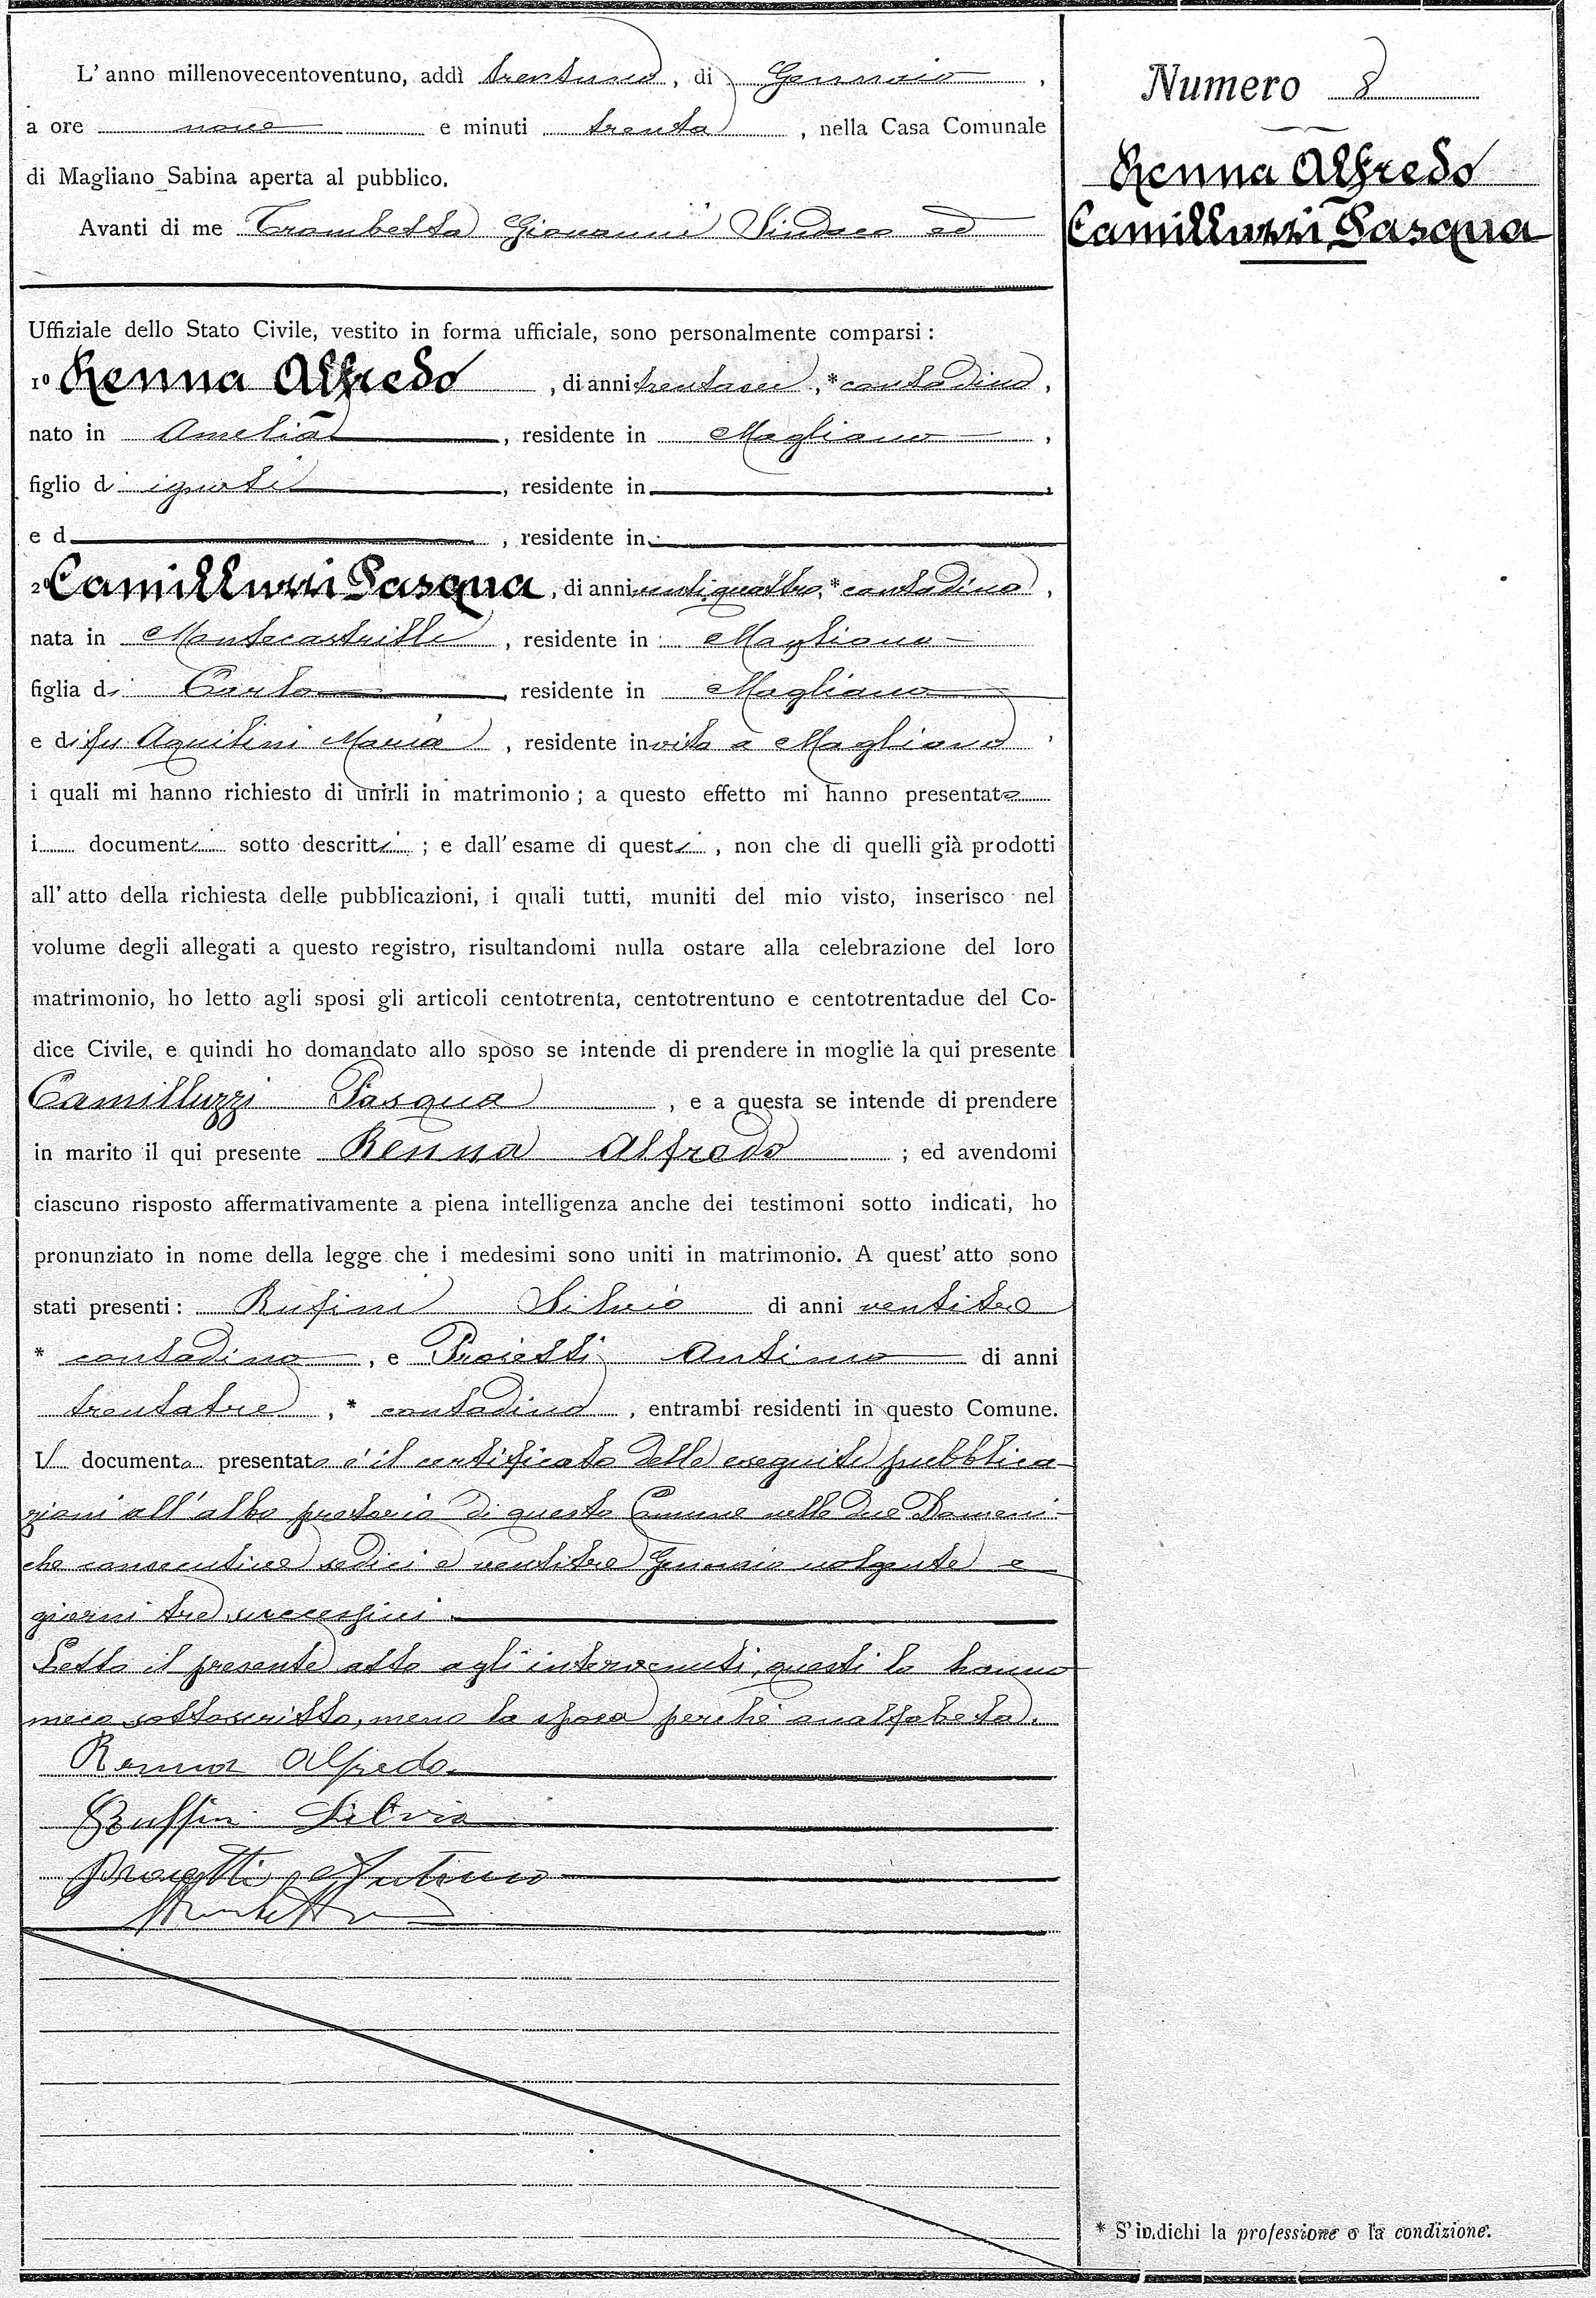 L'anno millenovecentoventuno, addì trentuno, di Gennaio,
a ore nove e minuti trenta, nella Casa Comunale
di Magliano Sabina aperta al pubblico.
Avanti di me Trombetta Giovanni Sindaco ed
Uffiziale dello Stato Civile, vestito in forma ufficiale, sono personalmente comparsi:
1º Renna Alfredo, di anni trentasei, *contadino,
nato in Amelia, residente in Magliano,
figlio di ignoti, residente in
e d, residente in
2º Camilluzzi Pasqua, di anni ventiquattro, *contadina,
nata in Montecastrilli, residente in Magliano
figlia di Carlo residente in Magliano
e di fu Aquilini Maria, residente in vita a Magliano,
i quali mi hanno richiesto di unirli in matrimonio; a questo effetto mi hanno presentato
i documenti sotto descritti; e dall'esame di questi, non che di quelli già prodotti
all'atto della richiesta delle pubblicazioni, i quali tutti, muniti del mio visto, inserisco nel
volume degli allegati a questo registro, risultandomi nulla ostare alla celebrazione del loro
matrimonio, ho letto agli sposi gli articoli centotrenta, centotrentuno e centotrentadue del Co-
dice Civile, e quindi ho domandato allo sposo se intende di prendere in moglie la qui presente
Camilluzzi Pasqua, e a questa se intende di prendere
in marito il qui presente Renna Alfredo; ed avendomi
ciascuno risposto affermativamente a piena intelligenza anche dei testimoni sotto indicati, ho
pronunziato in nome della legge che i medesimi sono uniti in matrimonio. A quest'atto sono
stati presenti: Rufini Silvio di anni ventitre
* contadino, e Proietti Antimo di anni
trentatre, * contadino, entrambi residenti in questo Comune.
Il documento presentato è il certificato delle eseguite pubblica-
zioni all'albo pretorio di questo Comune nelle due Domeni-
che consecutive sedici e ventitre Gennaio volgente e
giorni tre successivi.
Letto il presente atto agli intervenuti, questi lo hanno
meco sottoscritto, meno la sposa perchè analfabeta.
Renna Alfredo
Ruffini Silvio
Proietti Antimo
GTrombetta
Numero 8
Renna Alfredo
Camilluzzi Pasqua
* S'indichi la professione o la condizione.